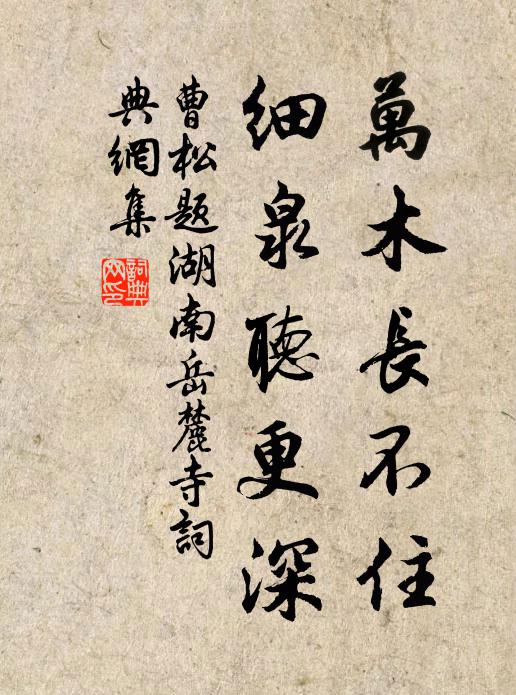 萬木長不住
細泉聽更深
曹松題湖南岳麓寺詞
典網集
詞典网印